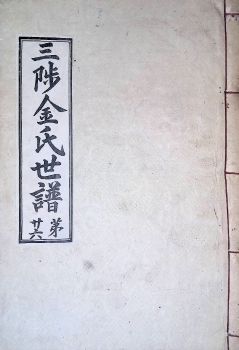 三陟金氏世譜
第
廿六